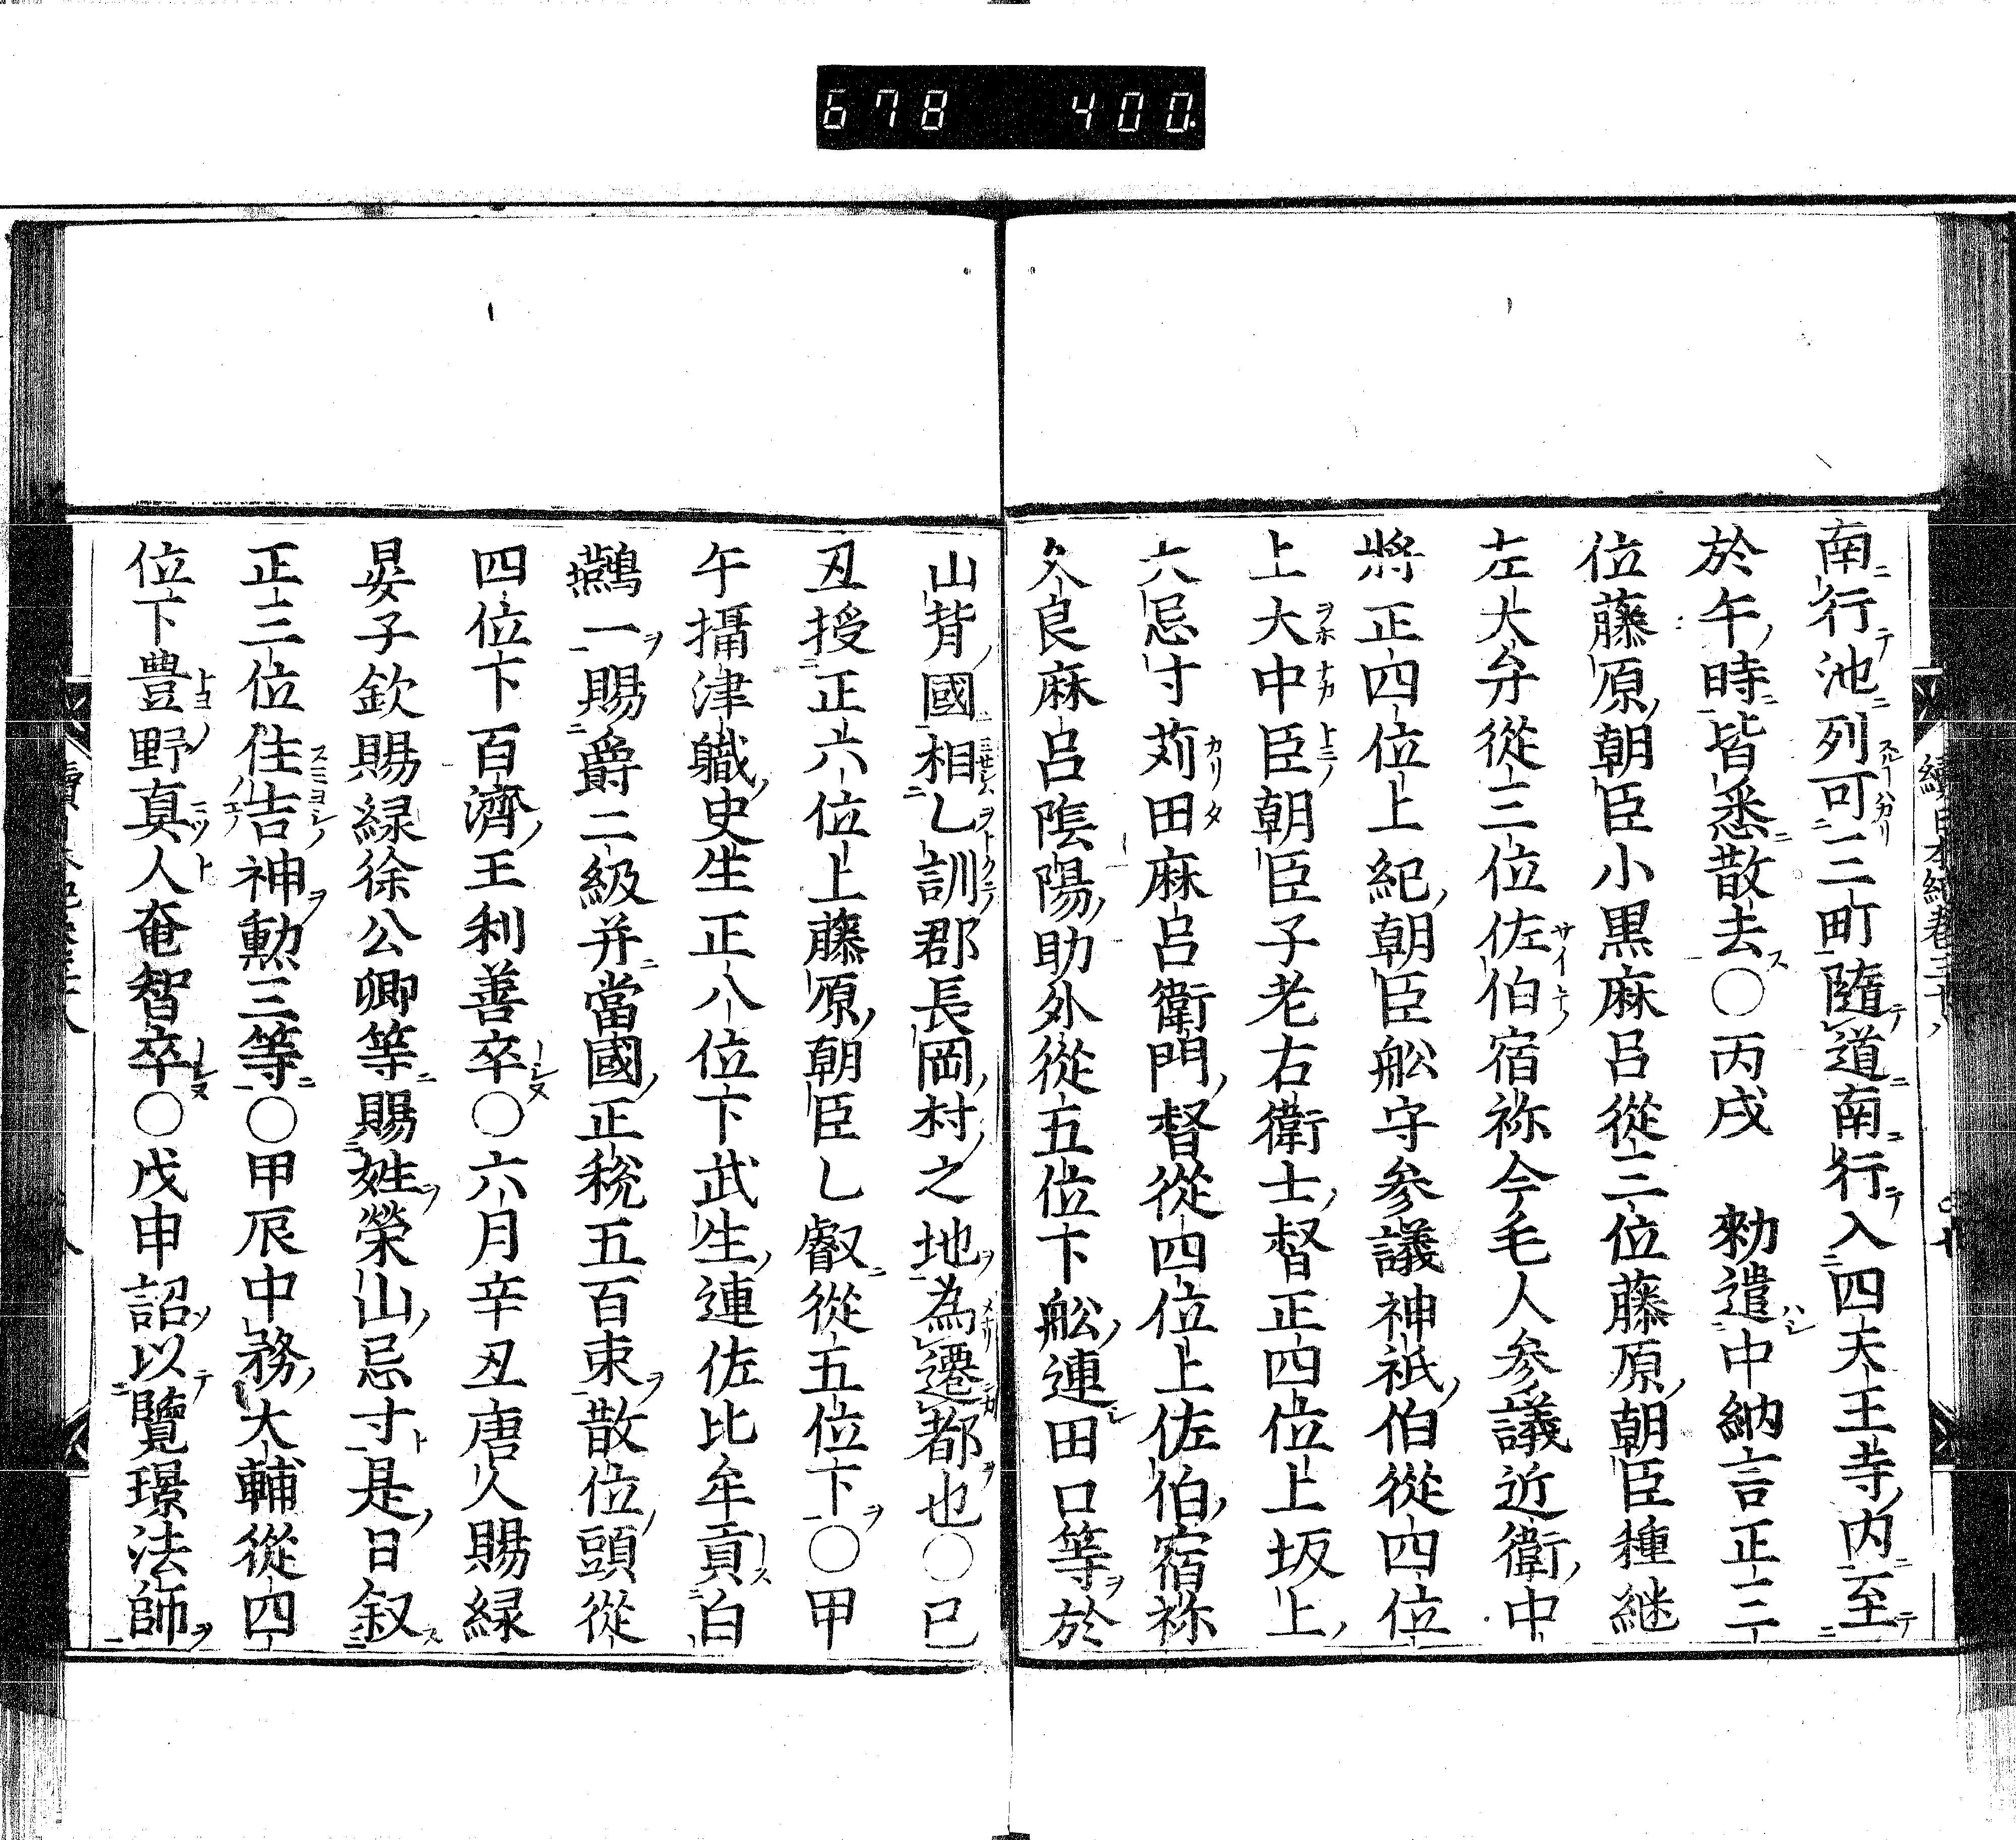 678 400
南行池列可三町隨道南行入四天王寺内至
於午時皆悉散去〇丙戌 勅遣中納言正三
位藤原朝臣小黒麻呂從三位藤原朝臣種継
左大弁從三位佐伯宿祢今毛人参議近衛中
將正四位上紀朝臣舩守参議神祇伯從四位
上大中臣朝臣子老右衛士督正四位上坂上
六忌寸苅田麻呂衛門督從四位上佐伯宿祢
久良麻呂陰陽助外從五位下舩連田口等於
山背國相乙訓郡長岡村之地為遷都也〇已
丑授正六位上藤原朝臣乚叡從五位下〇甲
午攝津職史生正八位下武生連佐比牟貢白
鷰一賜爵二級并當國正税五百束散位頭從
四位下百濟王利善卒〇六月辛丑唐人賜緑
晏子欽賜緑徐公卿等賜姓榮山忌寸是日叙
正三位住吉神勲三等〇甲辰中務大輔從四
位下豊野真人奄智卒〇戊申詔以賢璟法師